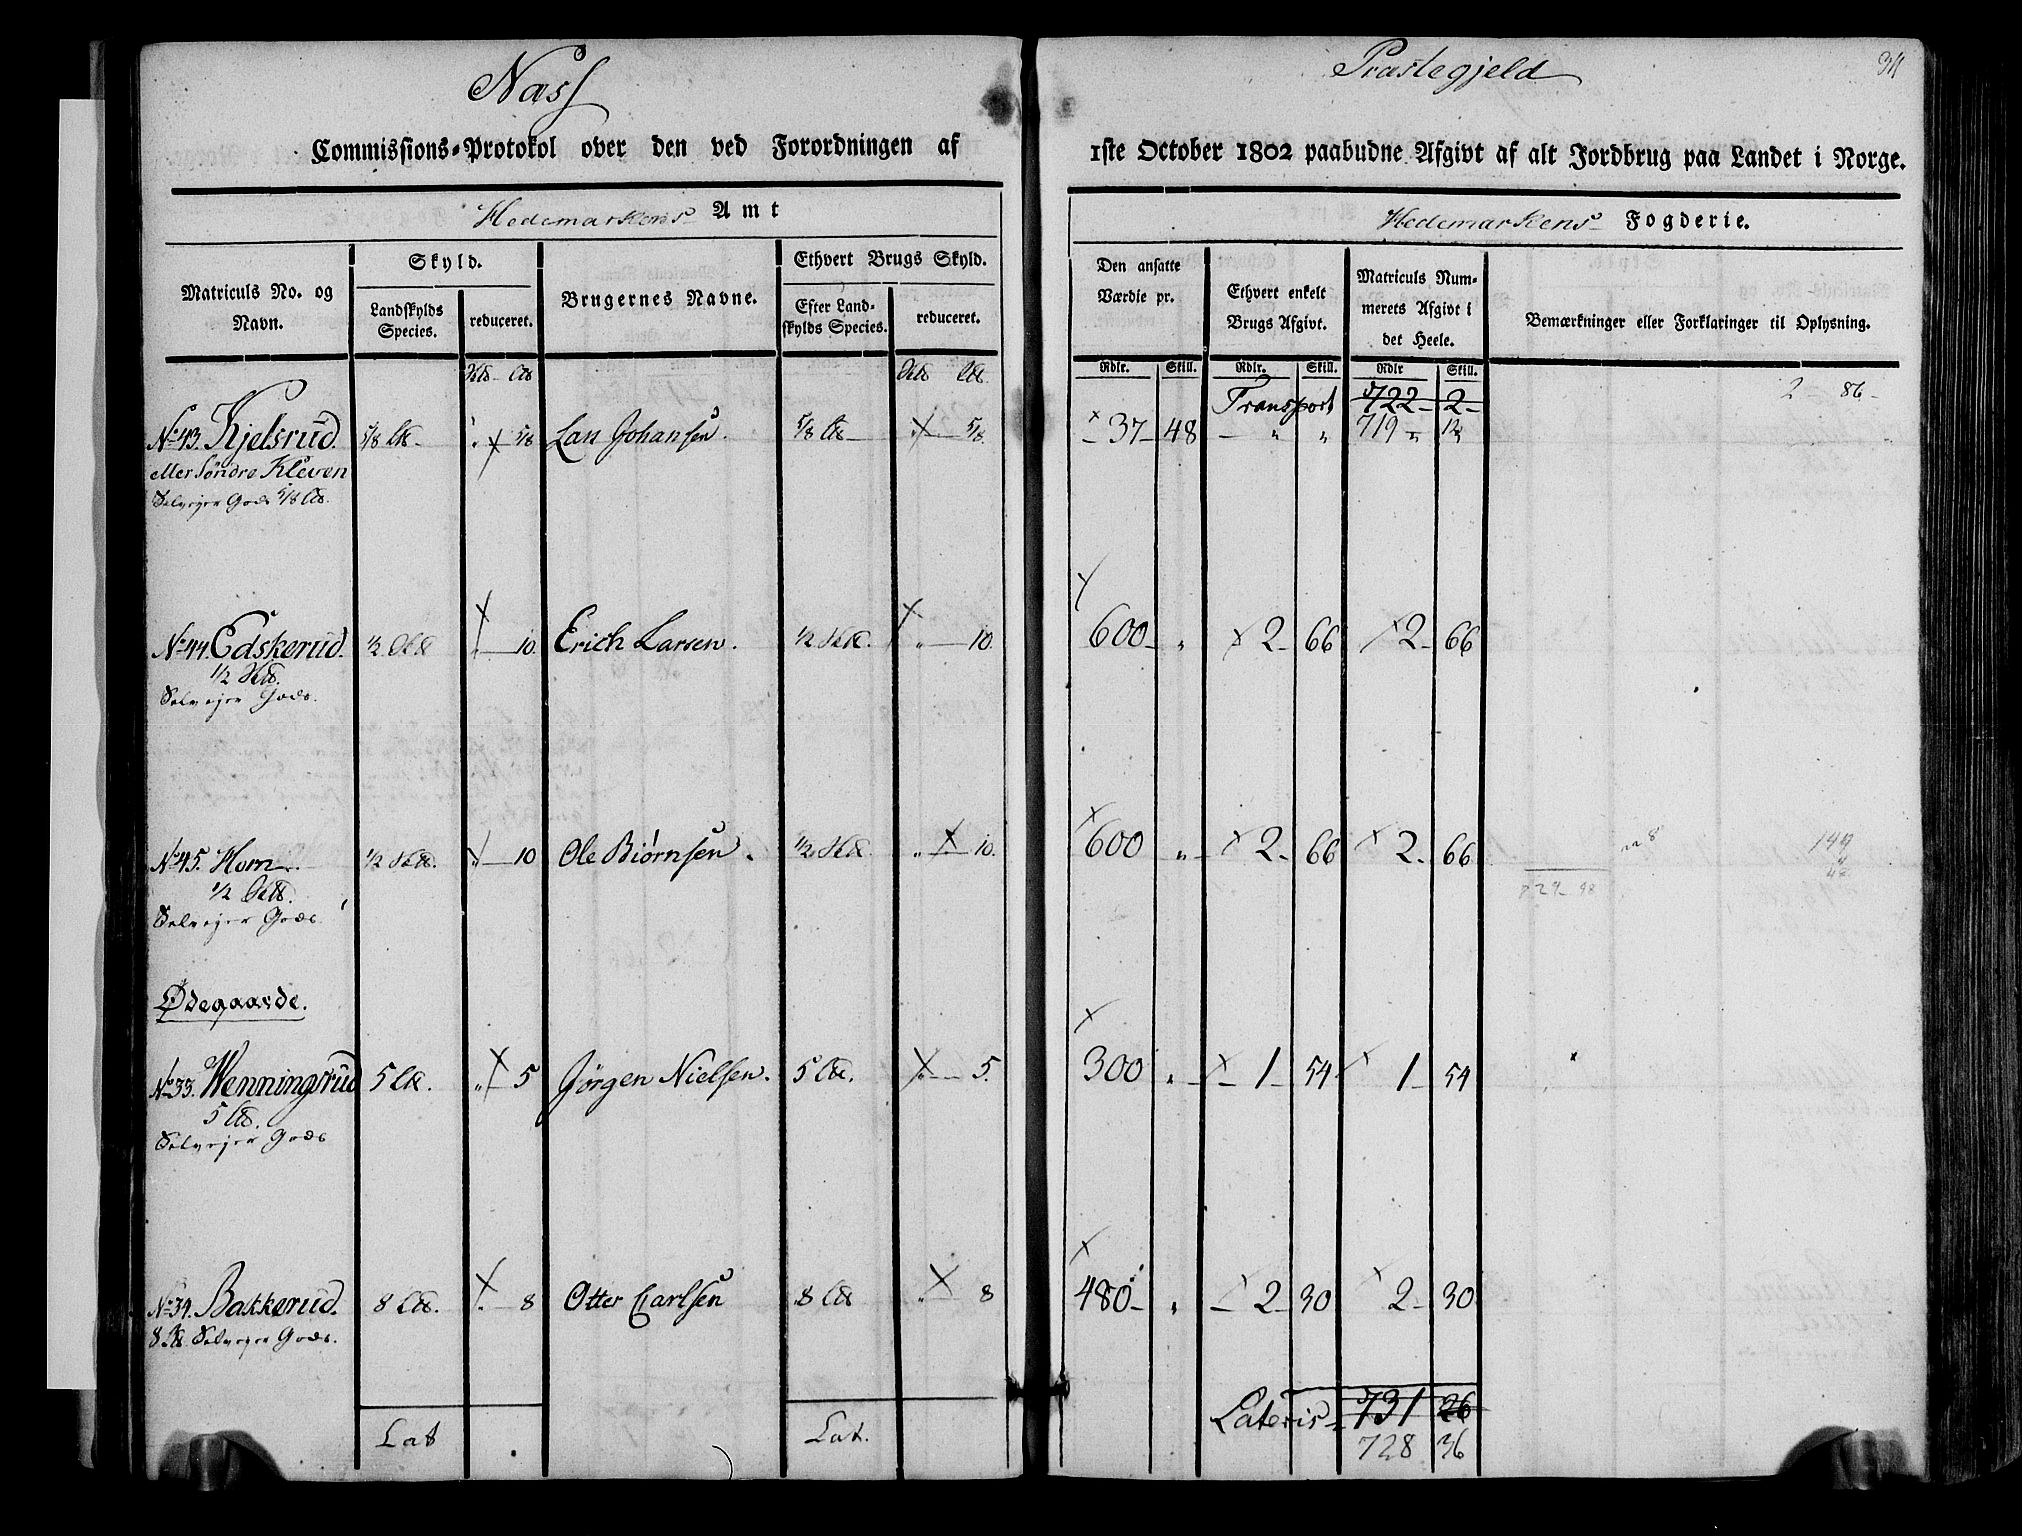 Næss Præstegjeld
34
Commissions-Protokol over den ved Forordningen af 1ste October 1802 paabudne Afgivt af alt Jordbrug paa Landet i Norge.
Hedemarkens Amt
Hedemarkens Fogderie.
Matriculs No. og Navn.
Skyld.
Landskylds Species.
reduceret.
Brugernes Navne.
Ethvert Brugs Skyld.
Efter Landskylds Species.
reduceret.
Den ansatte Værdie pr.
Ethvert enkelt Brugs Afgivt.
Matriculs Nummerets Afgivt i det Heele.
Bemærkninger eller Forklaringer til Oplysning.
Rdlr. Skill. Rdlr. Skill. Rdlr Skill.
Transport 722 - 2 -
2 - 86 -
No 43. Kjelsrud 5/8 5/8 Lars Johansen. 5/8 5/8. 37 - 48 - " " 719 - 12
eller Søndre Kleven
Selvejer Gods 5/8
No 44. Edskerud. 1/2 10. Erich Larsen. 1/2 " 10. 600 - " 2 - 66 2 - 66
1/2
Selvejer Gods.
No 45. Horn. 1/2 " 10 Ole Biørnsen. 1/2 " 10. 600 " 2 - 66 2 - 66
1/2
Selvejer Gods.
Ødegaarde.
No 33. Wenningsrud 5 " 5 Jörgen Nielsen. 5 " 5. 300 " 1 - 54 1 - 54
5
Selvejer Gods
No 34. Bakkerud. 8 8 Otter Carlsen 8 8 480 - " 2 - 30 2 - 30
8 Selvejer Gods.
Lat Lat. Lateris 731 26
728 36